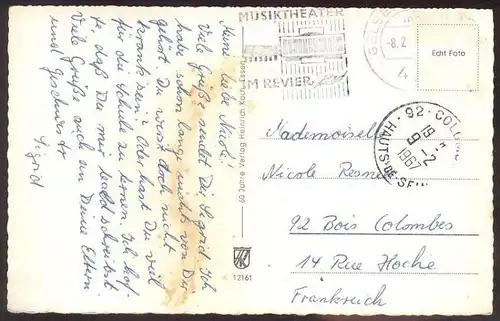 Meine liebe Nicole!
Viele Grüße sendet Dir Sigrid. Ich
habe schon lange nichts von Dir
gehört. Du warst doch nicht
krank sein. Oder hast Du viel
für die Schule zu lernen. Ich hof-
fe, daß Du mir bald schreibst.
Viele Grüße auch an Deine Eltern
und Geschwister
Sigrid
60 Jahre Verlag Heinrich Koch, Essen
12161
MUSIKTHEATER
IM REVIER
GELSE
-8.2
Echt Foto
92 - COLO
19 H
9 - 2
1967
HAUTS-DE-SEIN
Mademoiselle
Nicole
92 Bois Colombes
14 Rue Hoche
Frankreich